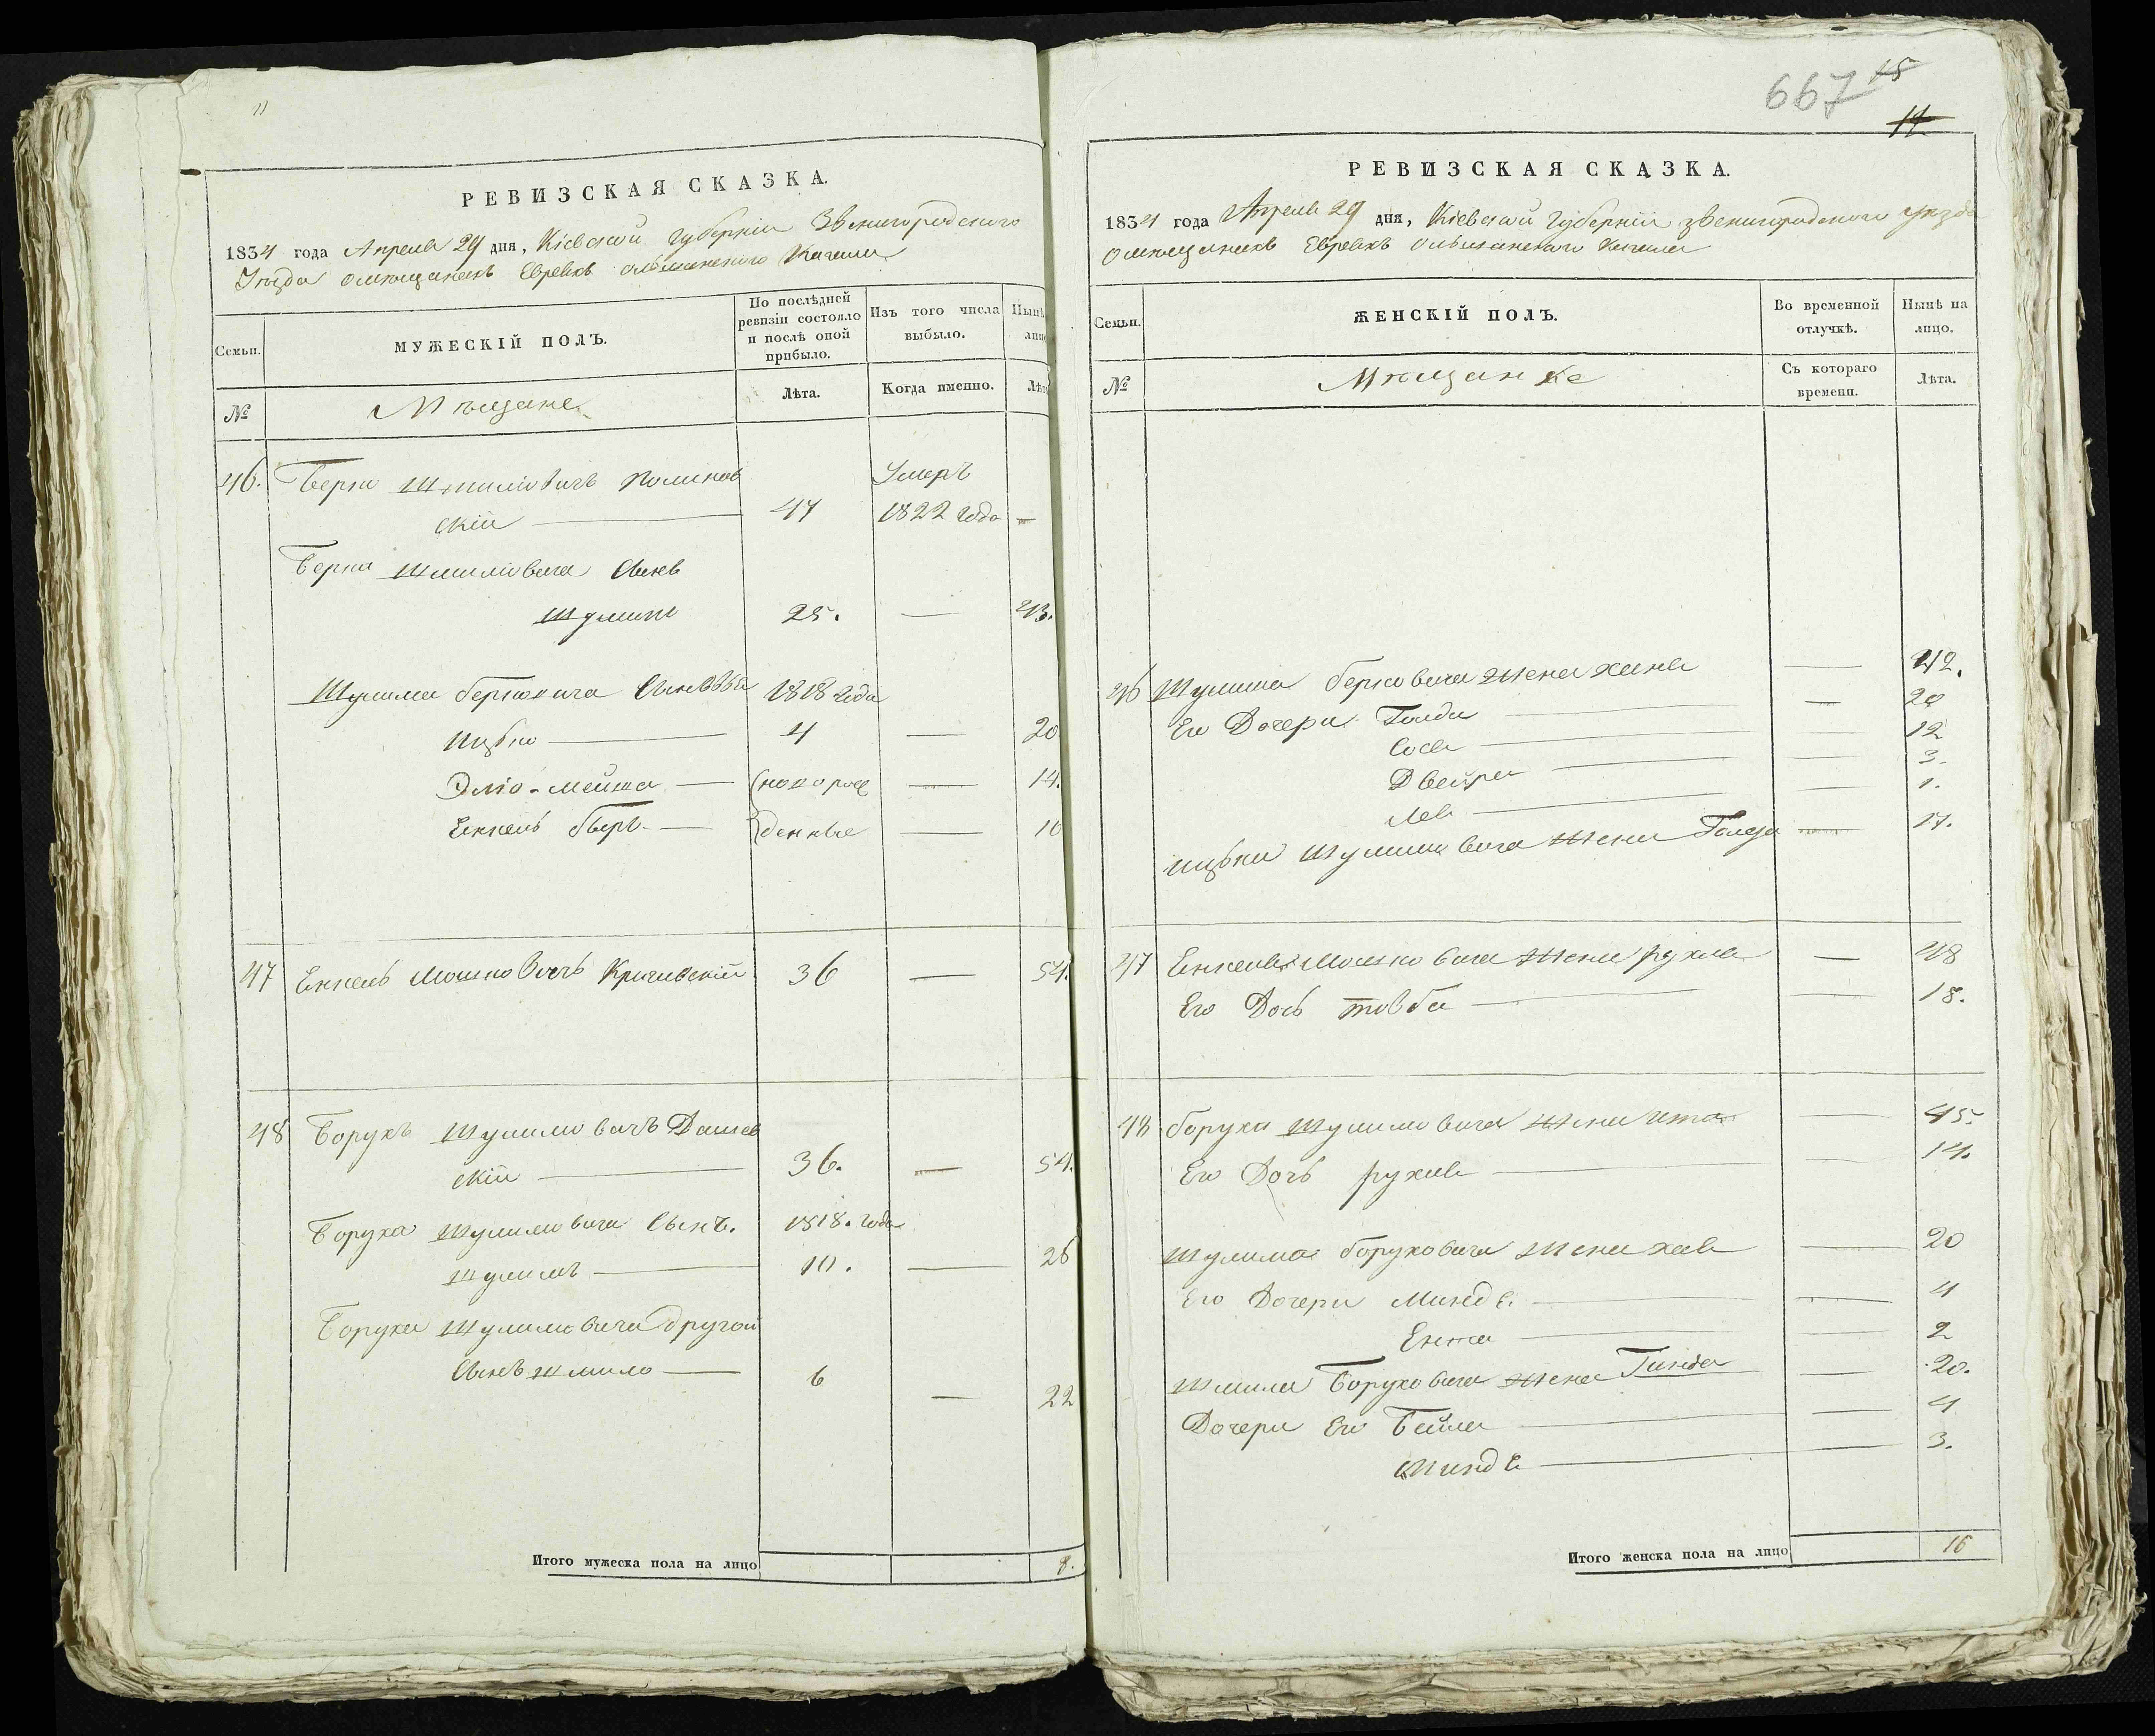 11
РЕВИЗСКАЯ СКАЗКА.
1834 года Апреля 29 дня, Кіевской Губерніи Звенигородского
Уезда о мещанехъ Евреяхъ ольшанского Кагала
Семьи.
МУЖЕСКІЙ ПОЛЪ.
По послѣдней ревизіи состояло и послѣ оной прибыло.
Изъ того числа выбыло.
Нынѣ
лицо
№
Мѣщане
Лѣта.
Когда именно.
Лѣта
46. Берко Шмиліовичъ Полинов
Умеръ
скій 47 1822 года —
Берка Шмиліовича Сынъ
Шулимъ 25. — 43.
Шулима Берковича Сыновья 1818 года
Ицько 4 — 20
Эліо-Мейша (новорож — 14.
Енкель Сберъ (денные — 10
47 Енкель Мошковичъ Кричевскій 36 — 54.
48 Борухъ Шулимовичъ Дашев
скій 36. — 54.
Боруха Шулимовича Сынъ. 1818. года
Шулимъ 10. — 26
Боруха Шулимовича другой
Сынъ Шмило 6 — 22
Итого мужеска пола на лицо 8.
667 15
14
РЕВИЗСКАЯ СКАЗКА.
1834 года Апреля 29 дня, Кіевской Губерніи звенигородского уезда
о мещанехъ Евреяхъ Ольшанского Кагала
Семьи.
ЖЕНСКІЙ ПОЛЪ.
Во временной отлучкѣ.
Нынѣ на лицо.
№
Мещанке
Съ котораго времени.
Лѣта.
46 Шулима Берковича жена хана — 42.
Его Дочери Голда — 20
Сося — 12
Двейра — 3.
Лея — 1.
ицька Шулимовича жена — 17.
47 Енкеля Мошковича жена рухля — 48
Его Дочь товба — 18.
48 Боруха Шулимовича жена ита — 45.
Его Дочь рухля — 14.
Шулима Боруховича жена хая — 20
Его Дочери Миндя. — 4
Ента — 2
Шмила Боруховича жена Гинда — 20.
Дочери Его Бейла — 4
Миндя — 3.
Итого женска пола на лицо 16